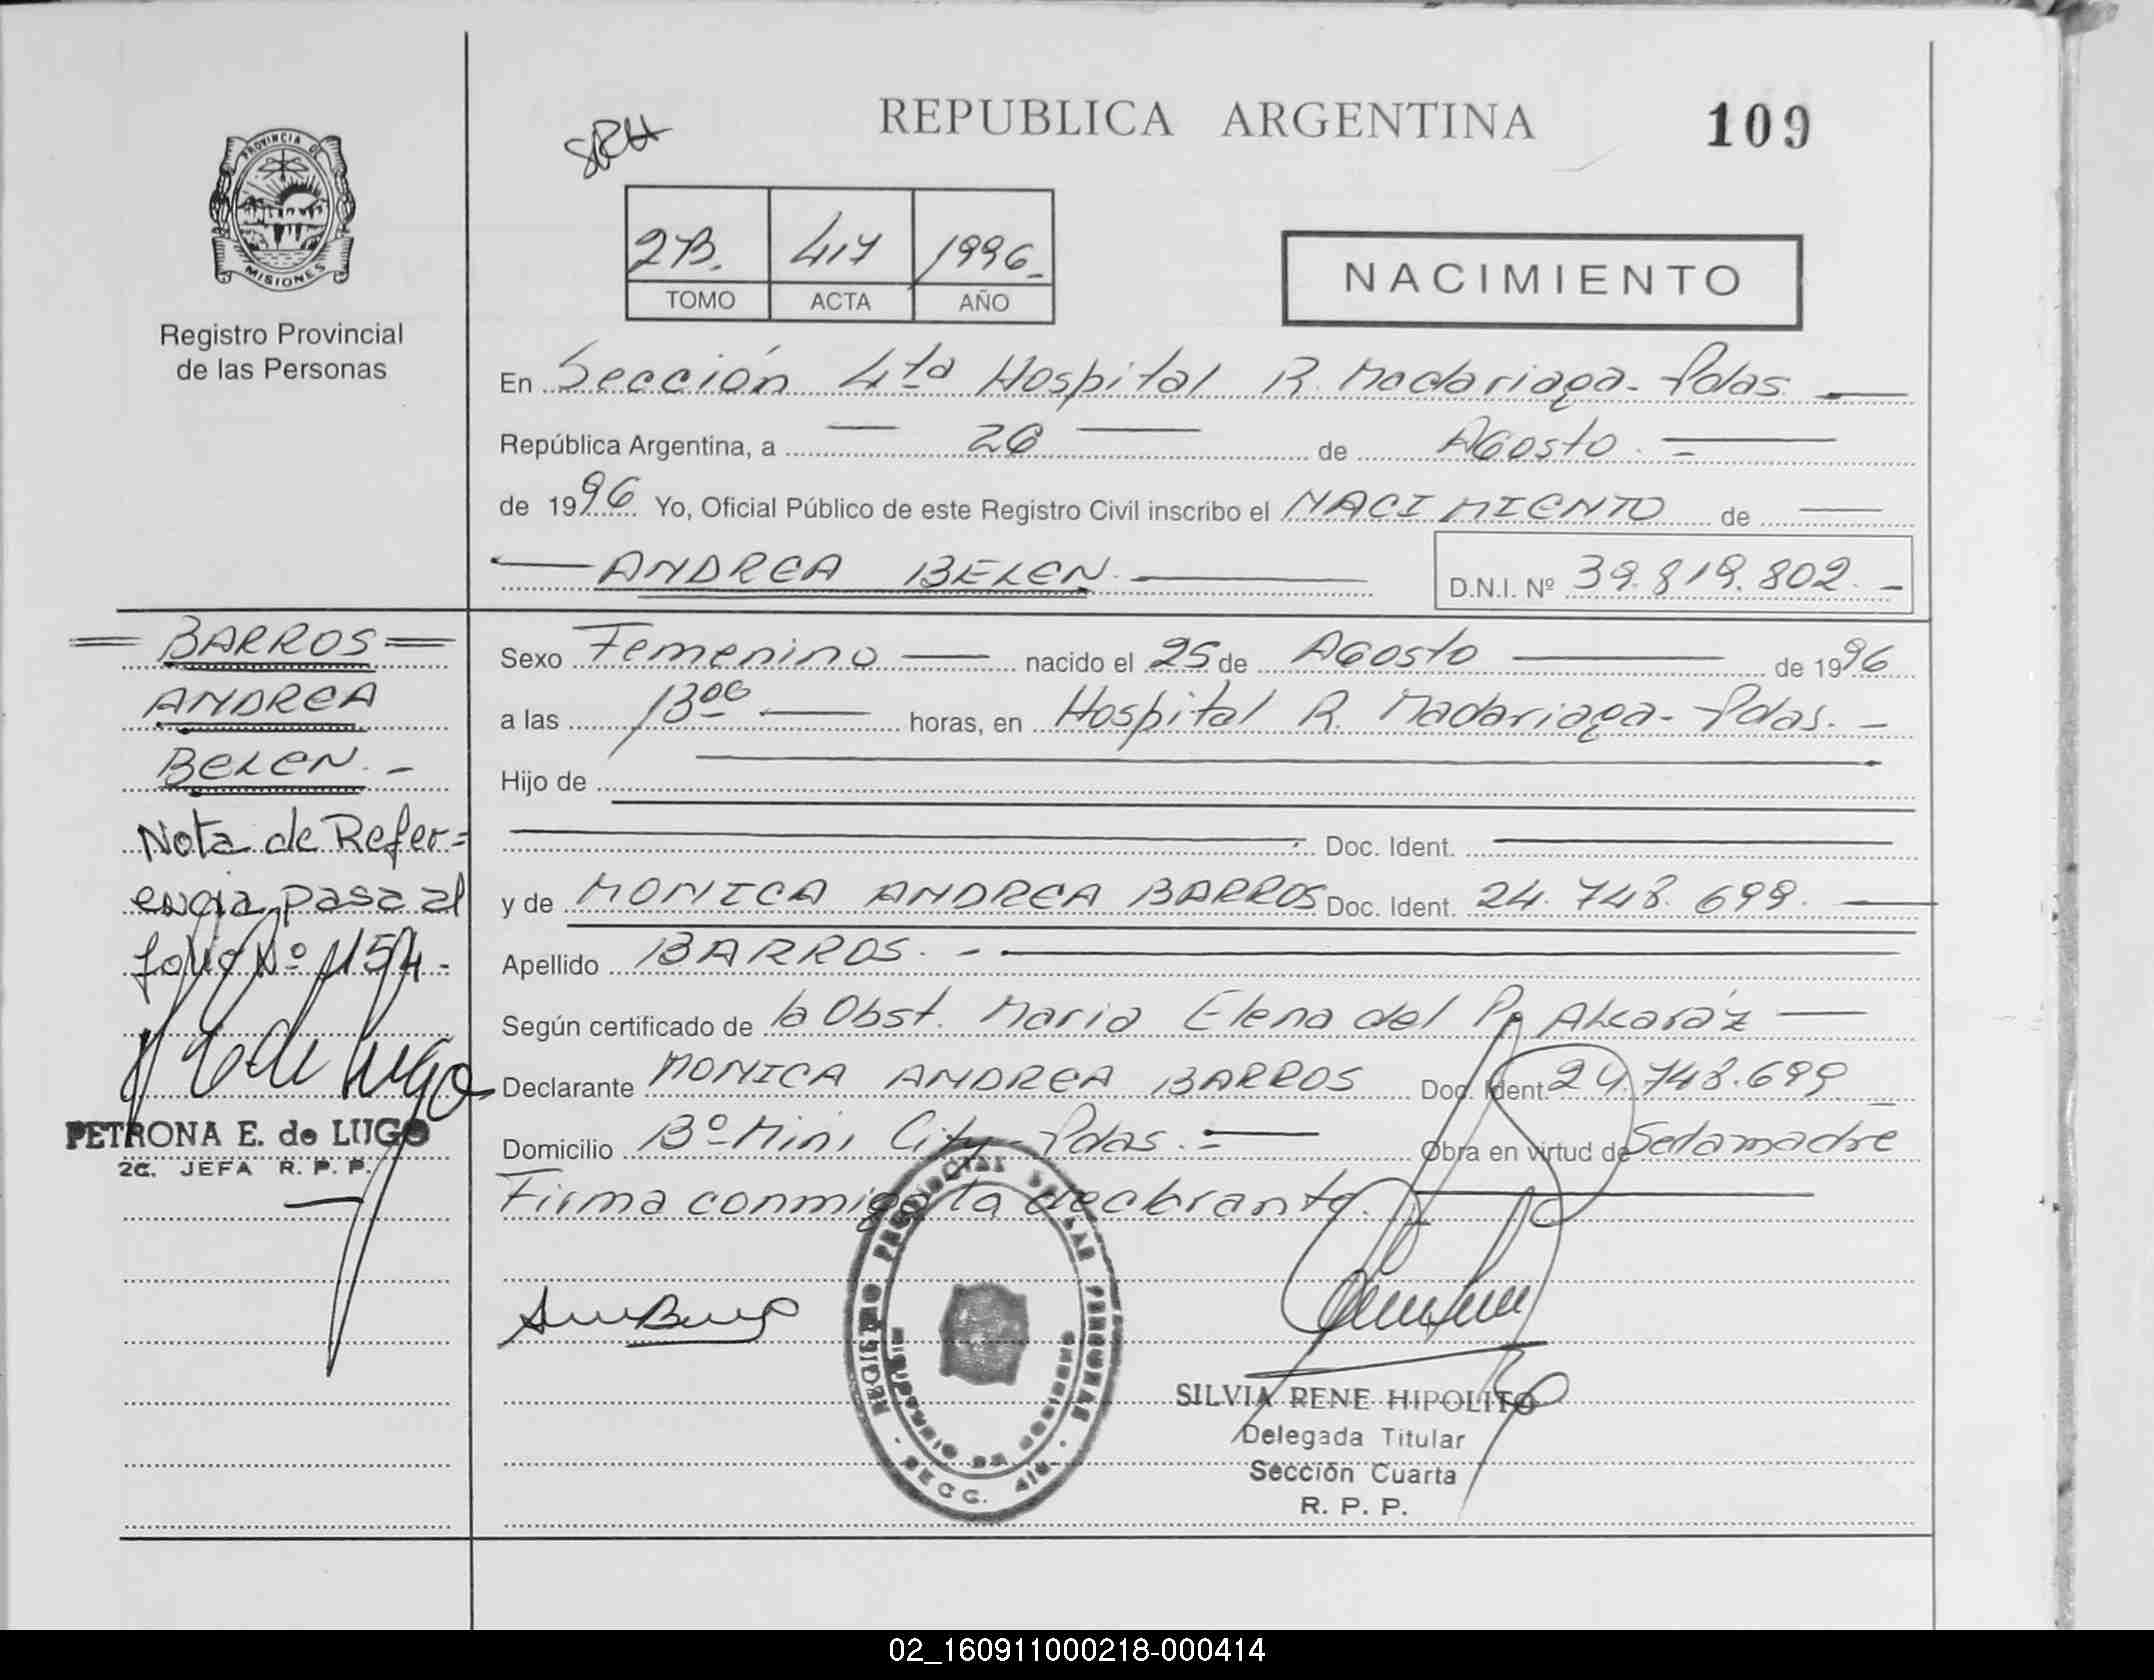 REPUBLICA ARGENTINA
109
SRH
PROVINCIA DE
MISIONES
Registro Provincial
de las Personas
2B. 417 1996.-
TOMO ACTA AÑO
NACIMIENTO
En Sección 4ta Hospital R. Madariaga - Pdas. —
República Argentina, a — 26 — de Agosto. —
de 1996 Yo, Oficial Público de este Registro Civil inscribo el NACIMIENTO de —
— ANDREA BELEN. —
D.N.I. Nº 39.819.802. -
= BARROS =
ANDREA
BELEN. -
Nota de Refer=
encia pasa al
folio Nº 115
PETRONA E. de LUGO
2a. JEFA R. P. P.
Sexo Femenino — nacido el 25 de Agosto — de 1996
a las 13 00 — horas, en Hospital R. Madariaga - Pdas. -
Hijo de
Doc. Ident.
y de MONICA ANDREA BARROS Doc. Ident. 24.748.699. —
Apellido BARROS. - —
Según certificado de la Obst. Maria Elena del P. Alcaráz —
Declarante MONICA ANDREA BARROS Doc. Ident. 24.748.699 -
Domicilio Bº Mini City - Pdas. - — Obra en virtud de Ser la madre
Firma conmigo la declarante. —
REGISTRO PROVINCIAL DE LAS PERSONAS
MINISTERIO DE GOBIERNO
SECC. 4ta.
SILVIA RENE HIPOLITO
Delegada Titular
Sección Cuarta
R. P. P.
02_160911000218-000414